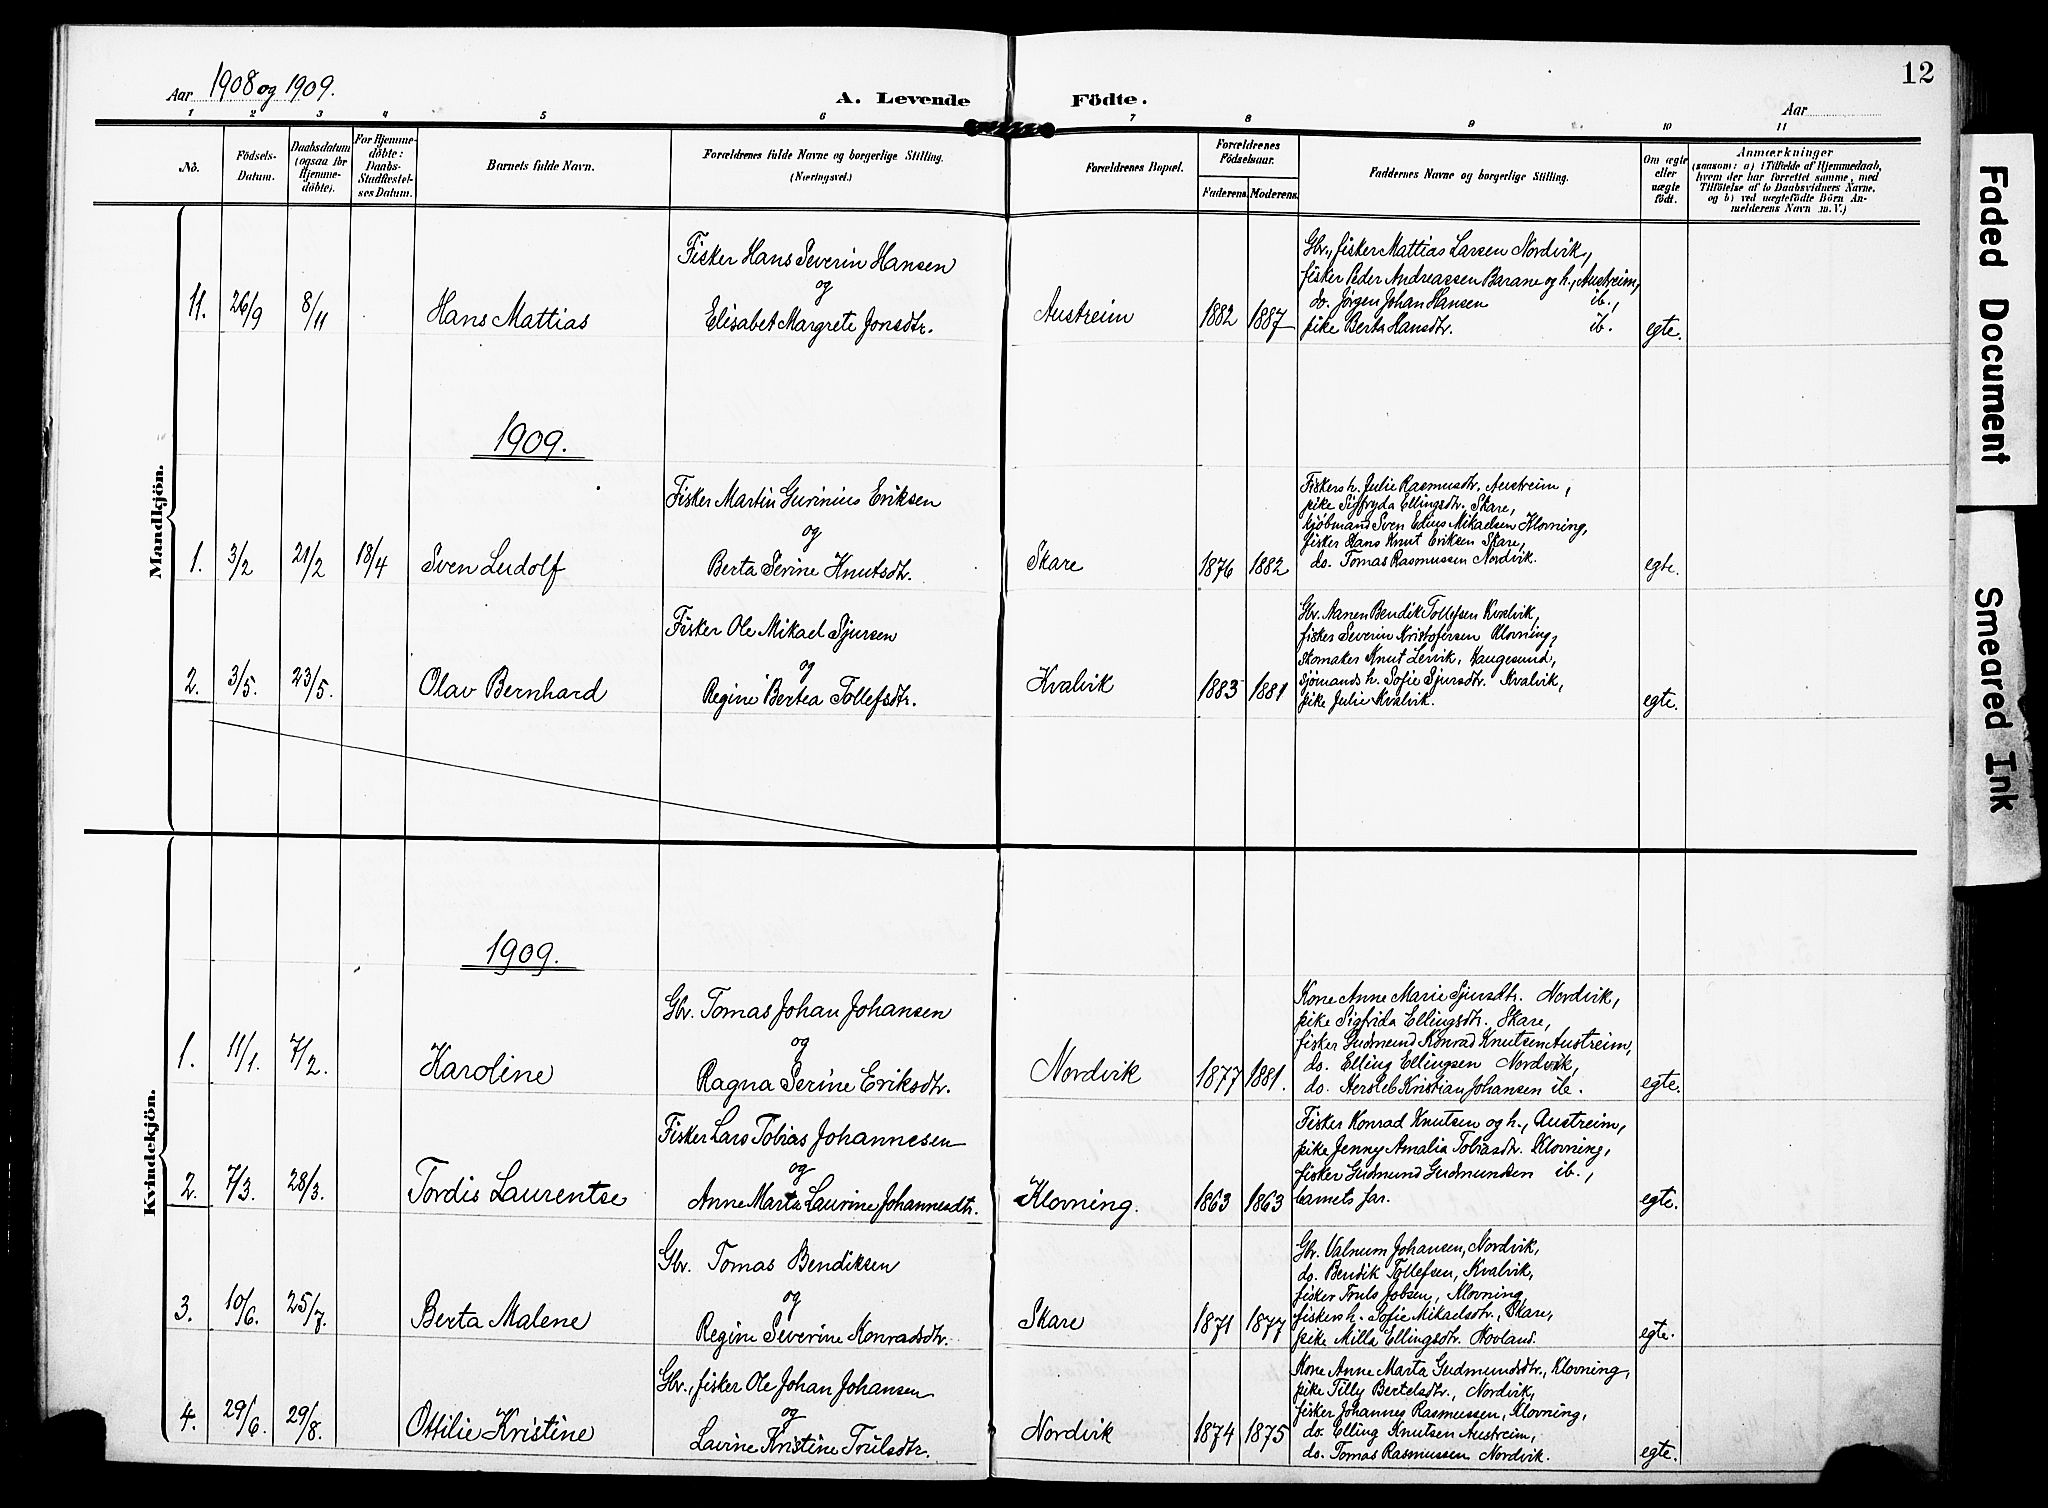 Aar 1908 og 1909.
A. Levende Födte.
Aar
12
1 2 3 4 5 6 7 8 9 10 11
No.
Födsels-
Datum.
Daabsdatum
(ogsaa for
Hjemme-
döbte).
For Hjemme-
döbte:
Daabs-
Stadfæstel-
ses Datum.
Barnets fulde Navn.
Forældrenes fulde Navne og borgerlige Stilling.
(Næringsvei.)
Forældrenes Bopæl.
Forældrenes
Födselsaar.
Faderens. Moderens.
Faddernes Navne og borgerlige Stilling.
Om ægte
eller
uægte
födt.
Anmærkninger
(saasom: a) i Tilfælde af Hjemmedaab,
hvem der har forrettet samme, med
Tilföielse af to Daabsvidners Navne,
og b) ved uægtefödte Börn An-
melderens Navn m. V.)
Mandkjön.
11. 26/9 8/11 Hans Mattias
Fisker Hans Severin Hansen
og
Elisabet Margrete Jonsdtr.
Austreim 1882 1887
Gbr., fisker Mattias Larsen Nordvik,
fisker Peder Andreassen Barane og h., Austreim,
do. Jørgen Johan Hansen ib.,
pike Berta Hansdtr. ib.
egte.
1909.
1. 3/2 21/2 18/4 Sven Ludolf
Fisker Martin Gurinius Eriksen
og
Berta Serine Knutsdtr.
Skare 1876 1882
Fiskers h. Julie Rasmusdtr. Austreim,
pike Sigfryda Ellingsdtr. Skare,
kjøbmand Sven Edius Mikaelsen Klovning,
fisker Hans Knut Eriksen Skare,
do. Tomas Rasmussen Nordvik.
egte.
2. 3/5. 23/5. Olav Bernhard
Fisker Ole Mikael Sjursen
og
Regine Bertea Tollefsdtr.
Kvalvik 1883 1881
Gbr. Aanen Bendik Tollefsen Kvalvik,
fisker Severin Kristofersen Klovning,
skomaker Knut Lervik, Haugesund,
sjømands h. Sofie Sjursdtr. Kvalvik,
pike Julie Kvalvik.
egte.
Kvindekjön.
1909.
1. 11/1. 7/2. Karoline
Gbr. Tomas Johan Johansen
og
Ragna Serine Eriksdtr.
Nordvik 1877 1881.
Kone Anne Marie Sjursdtr. Nordvik,
pike Sigfrida Ellingsdtr. Skare,
fisker Gudmund Konrad Knutsen Austreim,
do. Elling Ellingsen Nordvik,
do. Hersleb Kristian Johansen ib.
egte.
2. 7/3. 28/3. Tordis Laurentse
Fisker Lars Tobias Johannesen
og
Anne Marta Laurine Johannesdtr.
Klovning. 1863 1863
Fisker Konrad Knutsen og h., Austreim,
pike Jenny Amalia Tobiasdtr. Klovning,
fisker Gudmund Gudmundsen ib.,
barnets far.
egte.
3. 10/6. 25/7. Berta Malene
Gbr. Tomas Bendiksen
og
Regine Severine Konradsdtr.
Skare 1871 1877
Gbr. Valnum Johansen, Nordvik,
do. Bendik Tollefsen, Kvalvik,
fisker Truls Jobsen, Klovning,
fiskers h. Sofie Mikaelsdtr., Skare,
pike Milla Ellingsdtr. Hovland.
egte.
4. 29/6. 29/8. Ottilie Kristine
Gbr., fisker Ole Johan Johansen
og
Lavine Kristine Trulsdtr.
Nordvik 1874 1875
Kone Anne Marta Gudmundsdtr., Klovning,
pike Tilly Bertelsdtr., Nordvik,
fisker Johannes Rasmussen, Klovning,
do. Elling Knutsen Austreim,
do. Tomas Rasmussen Nordvik.
egte.
Faded Document
Smeared Ink